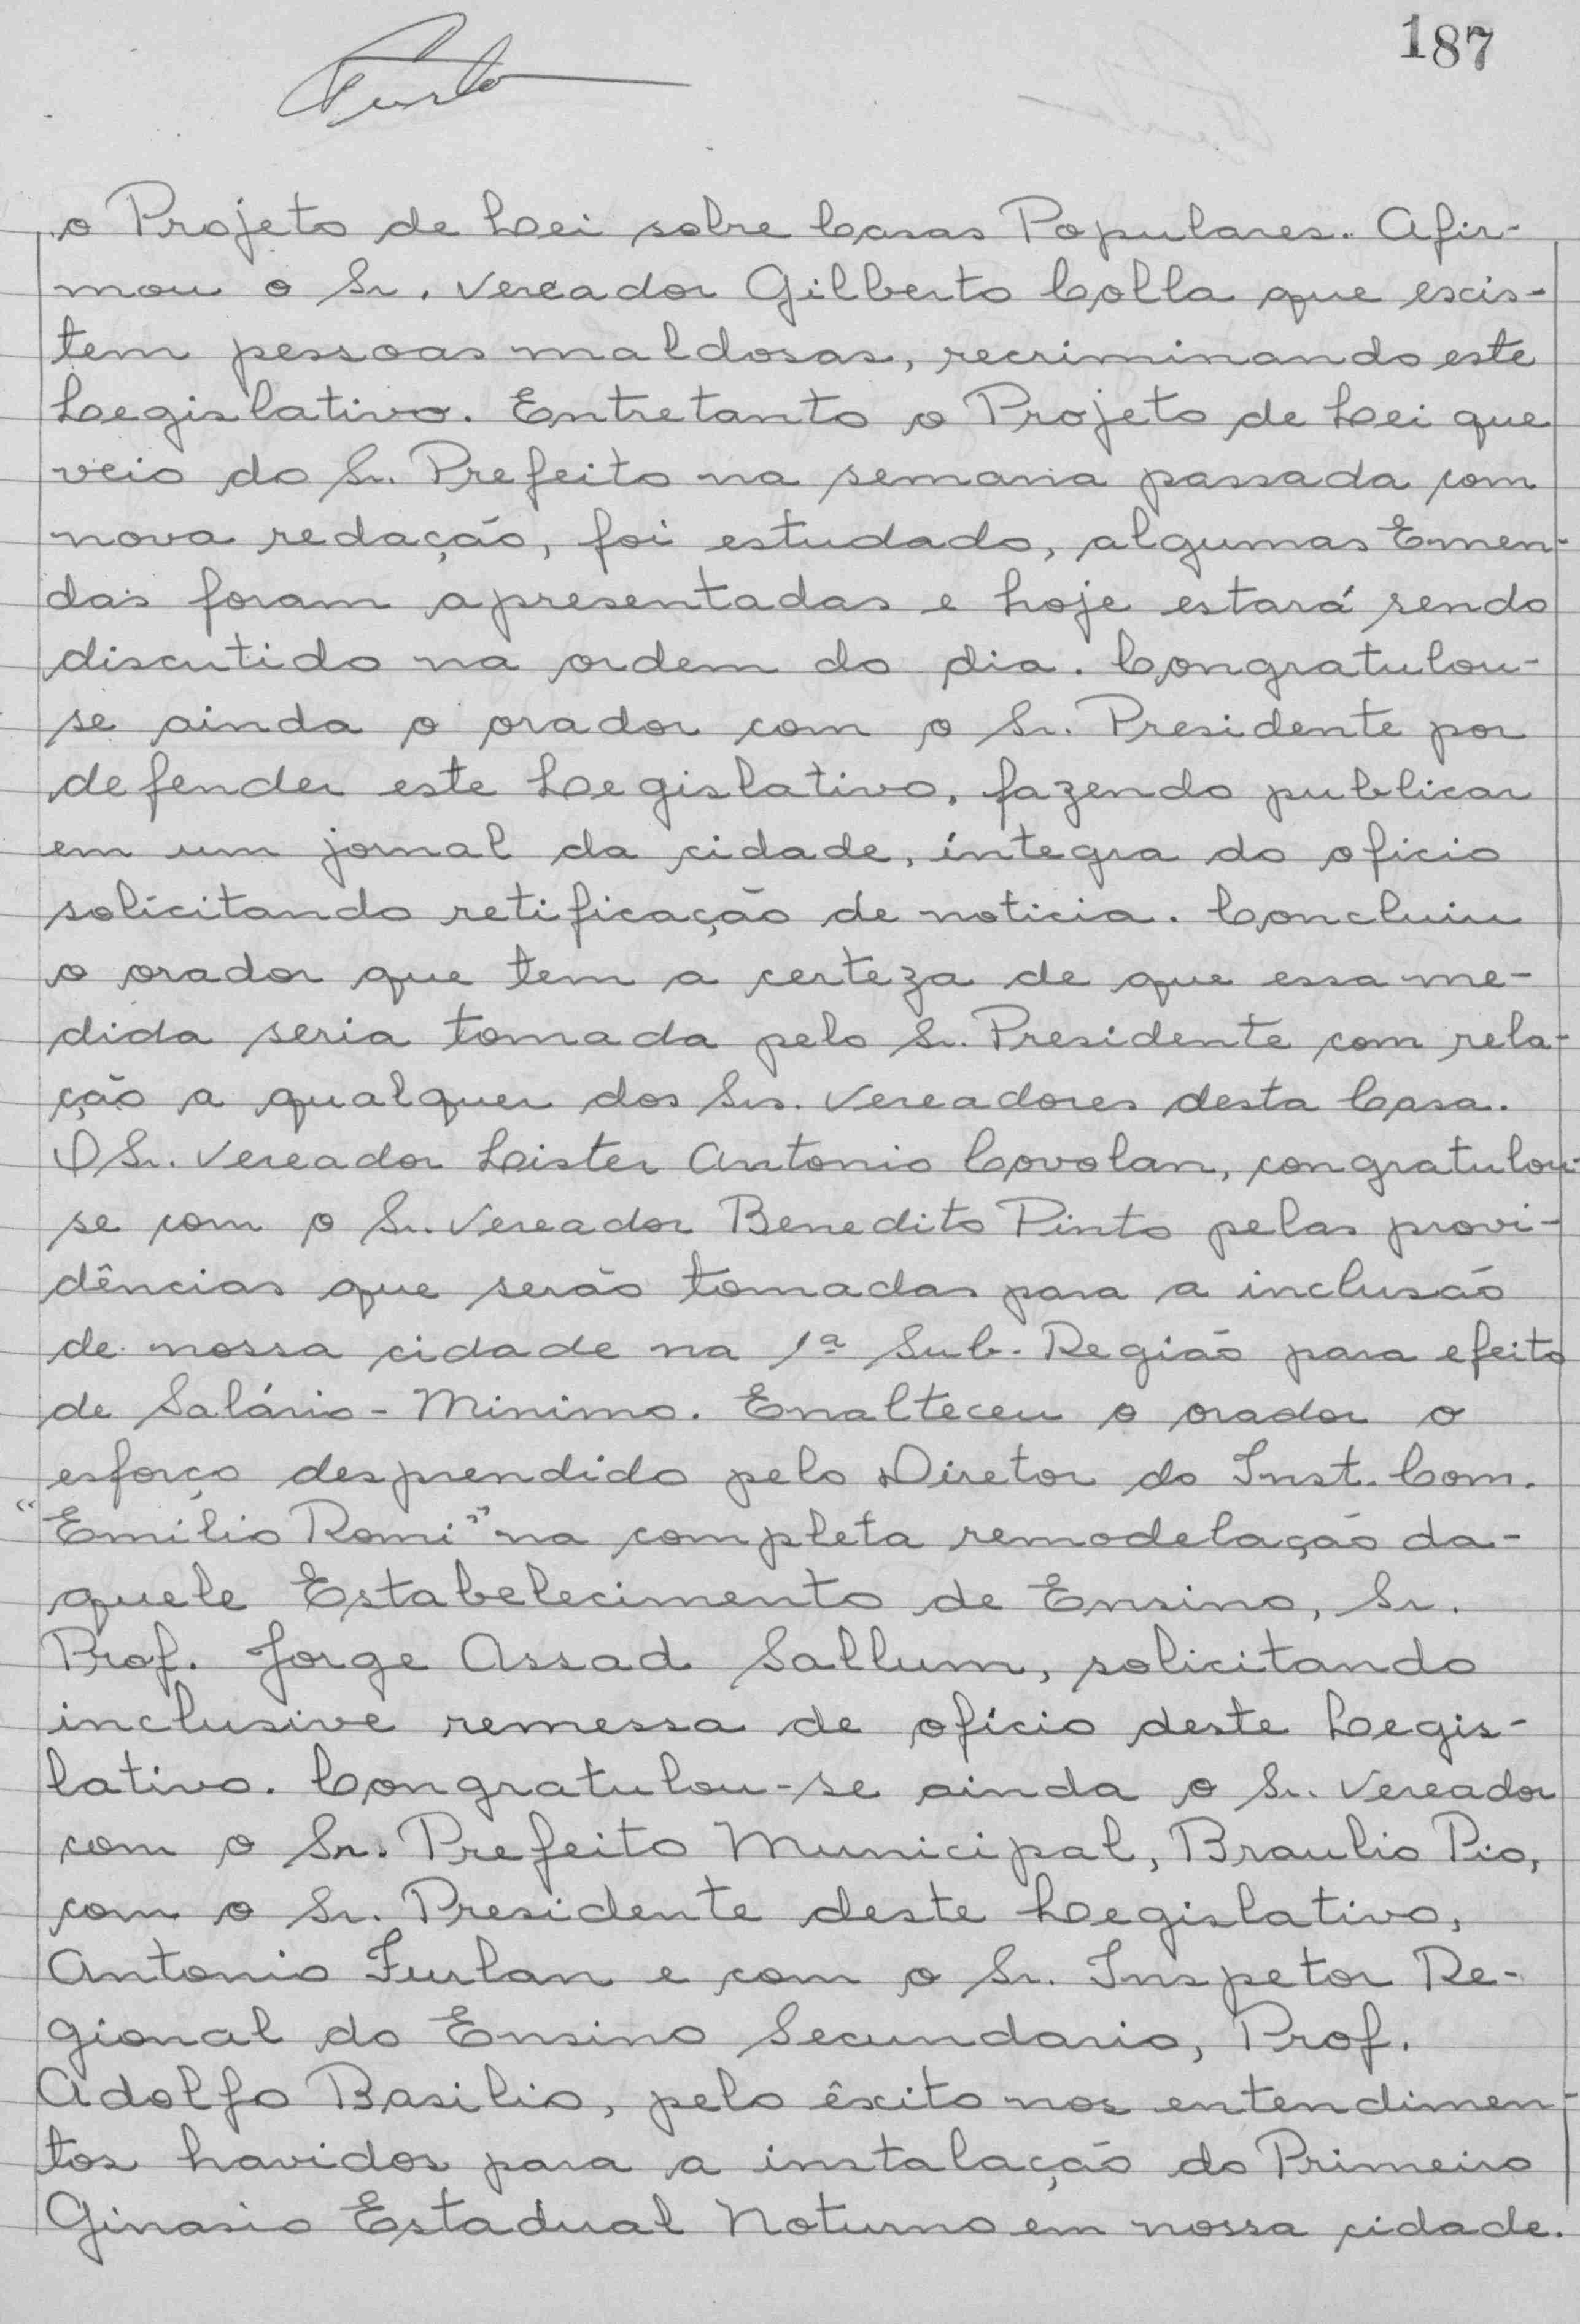 187
o Projeto de Lei sobre Casas Populares. Afir-
mou o Sr. Vereador Gilberto Colla que exis-
tem pessoas maldosas, recriminando este
Legislativo. Entretanto o Projeto de Lei que
veio do Sr. Prefeito na semana passada com
nova redação, foi estudado, algumas Emen-
das foram apresentadas e hoje estará sendo
discutido na ordem do dia. Congratulou-
se ainda o orador com o Sr. Presidente por
defender este Legislativo, fazendo publicar
em um jornal da cidade, íntegra do oficio
solicitando retificação de noticia. Concluiu
o orador que tem a certeza de que essa me-
dida seria tomada pelo Sr. Presidente com rela-
ção a qualquer dos Srs. Vereadores desta Casa.
O Sr. Vereador Lister Antonio Covolan, congratulou-
se com o Sr. Vereador Benedito Pinto pelas provi-
dências que serão tomadas para a inclusão
de nossa cidade na 1ª Sub-Região para efeito
de Salário-Minimo. Enalteceu o orador o
esforço desprendido pelo Diretor do Inst. Com.
"Emílio Romi" na completa remodelação da-
quele Estabelecimento de Ensino, Sr.
Prof. Jorge Assad Sallum, solicitando
inclusive remessa de ofício deste Legis-
lativo. Congratulou-se ainda o Sr. Vereador
com o Sr. Prefeito Municipal, Braulio Pio,
com o Sr. Presidente deste Legislativo,
Antonio Furlan e com o Sr. Inspetor Re-
gional do Ensino Secundario, Prof.
Adolfo Basilio, pelo êxito nos entendimen-
tos havidos para a instalação do Primeiro
Ginasio Estadual Noturno em nossa cidade.